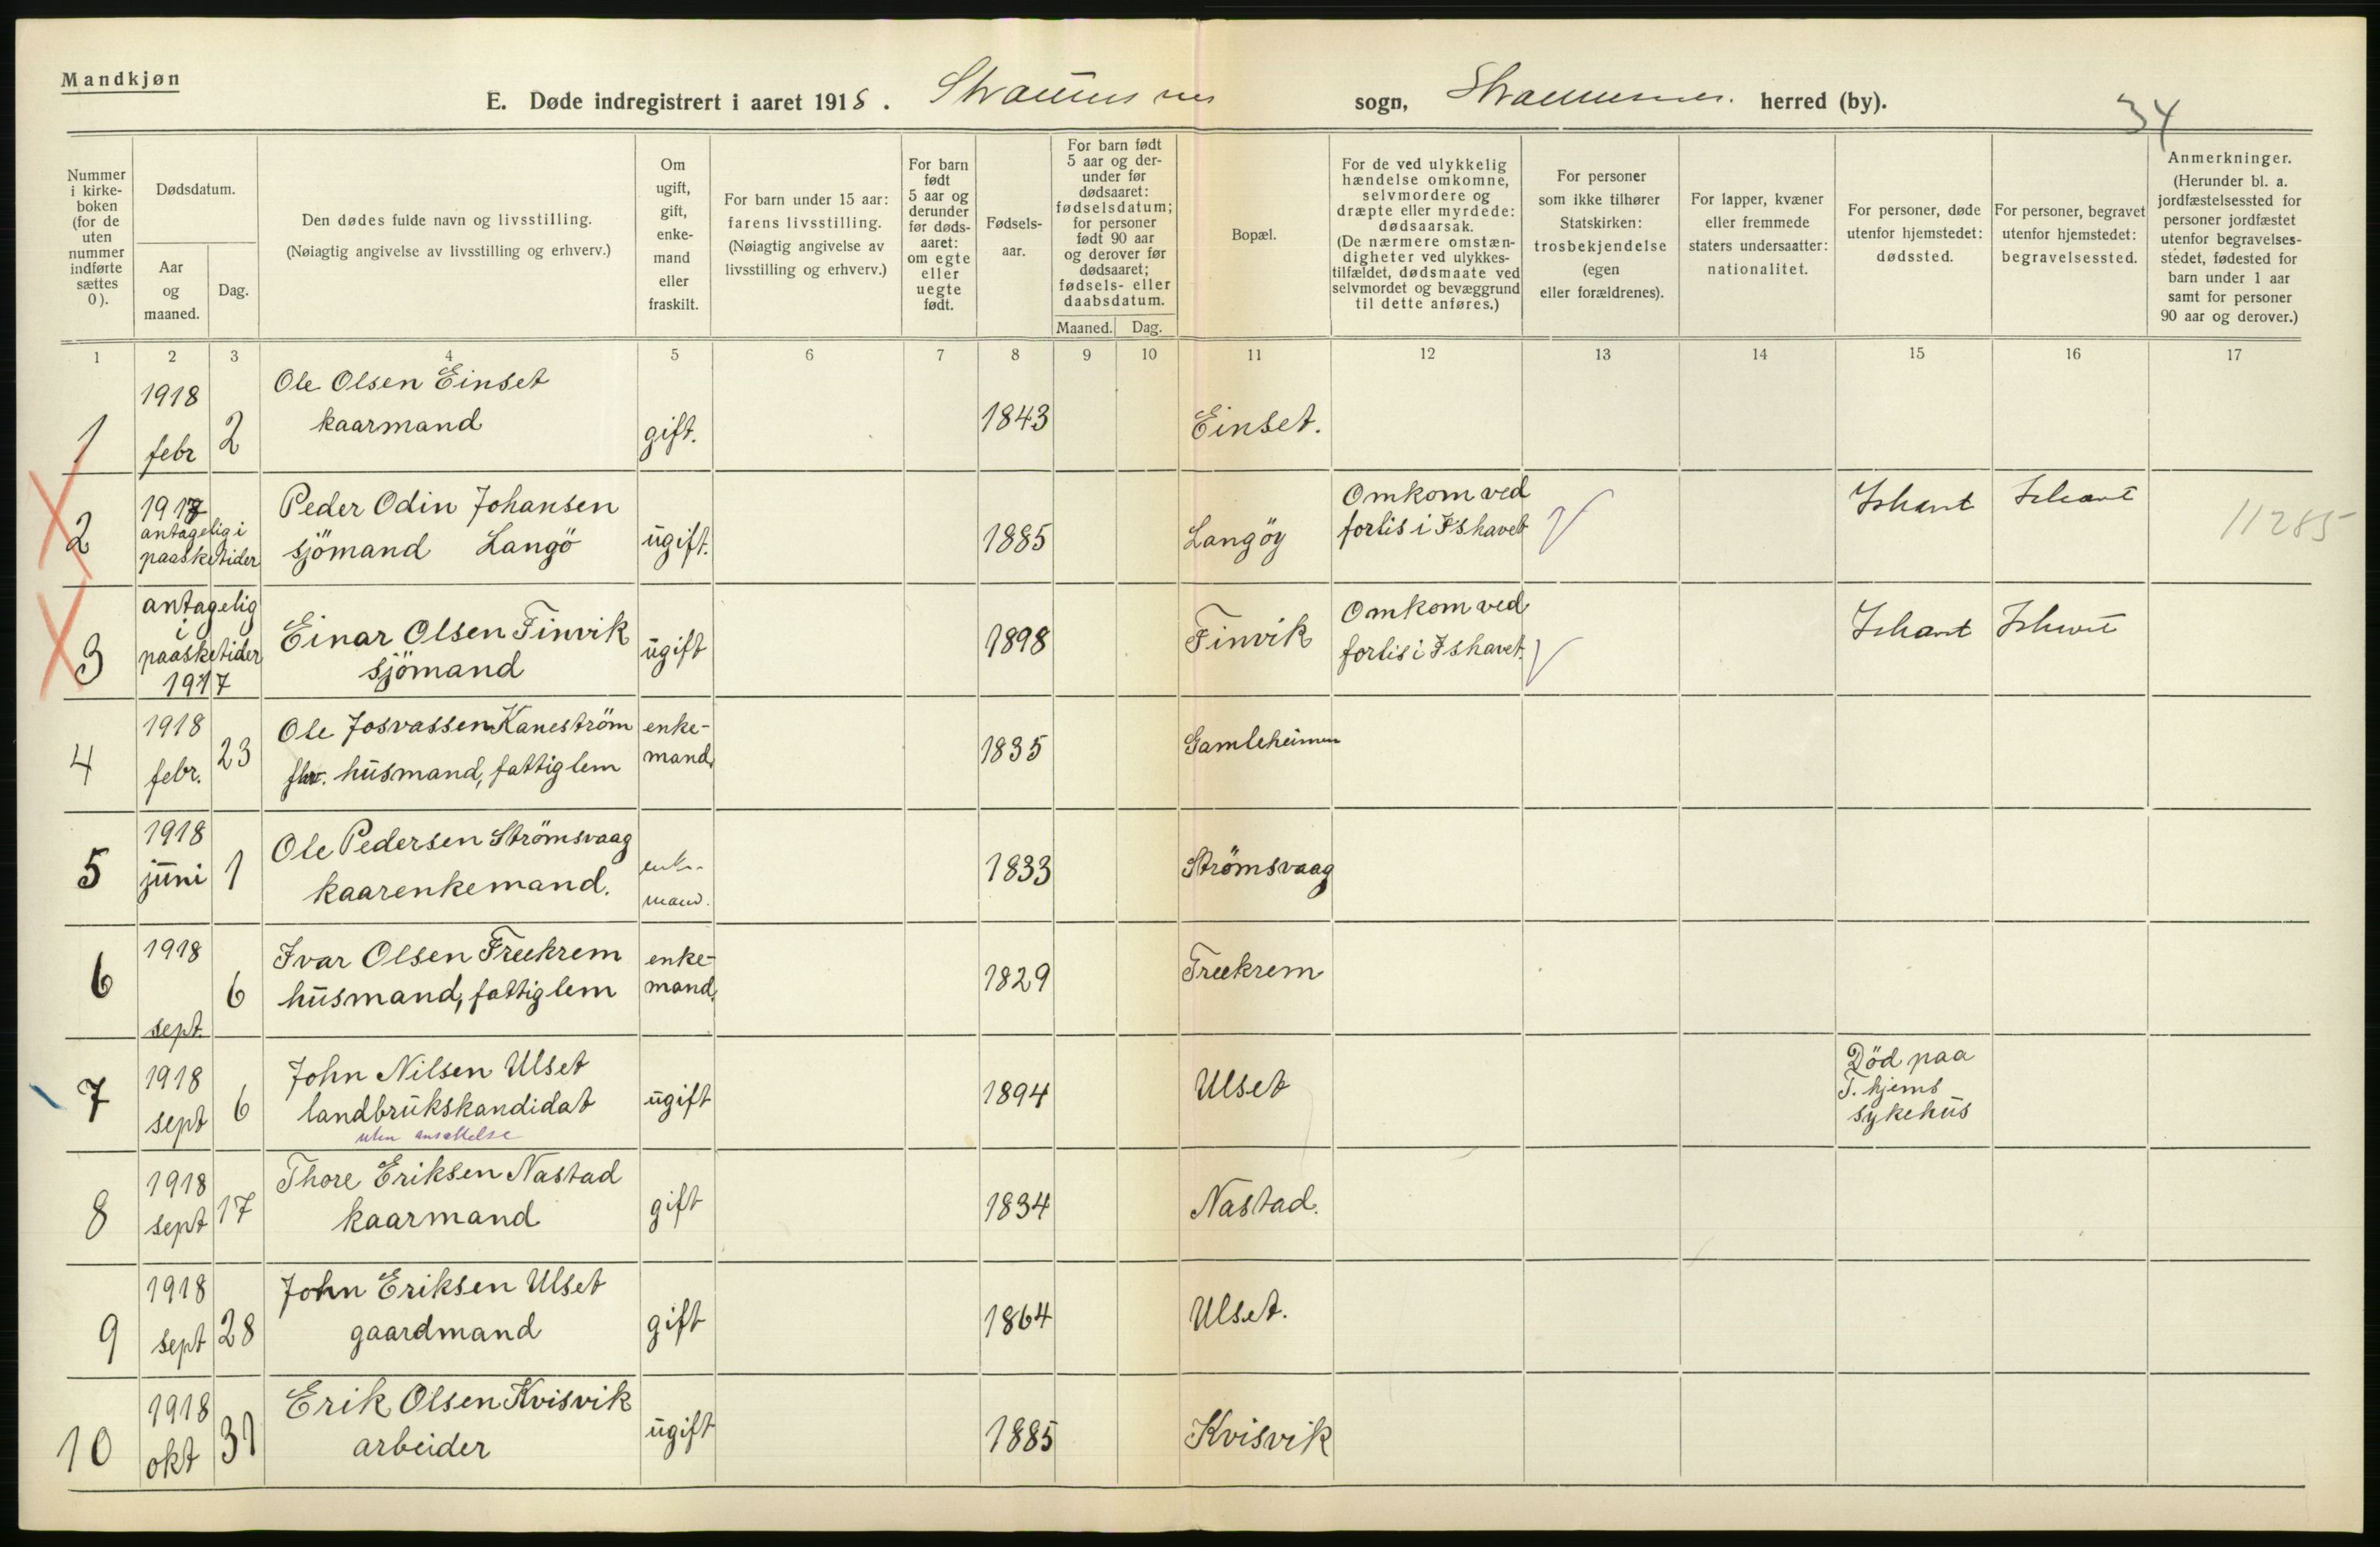 Mandkjøn
E. Døde indregistrert i aaret 1918. Straumsnes sogn, Straumsnes. herred (by).
34
Nummer i kirke-boken (for de uten nummer indførte sættes 0).
Dødsdatum.
Aar og maaned.
Dag.
Den dødes fulde navn og livsstilling.
(Nøiagtig angivelse av livsstilling og erhverv.)
Om ugift, gift, enke-mand eller fraskilt.
For barn under 15 aar: farens livsstilling. (Nøiagtig angivelse av livsstilling og erhverv.)
For barn født 5 aar og derunder før døds-aaret: om egte eller uegte født.
Fødsels-aar.
For barn født 5 aar og der-under før dødsaaret: fødselsdatum; for personer født 90 aar og derover før dødsaaret; fødsels- eller daabsdatum.
Maaned. Dag.
Bopæl.
For de ved ulykkelig hændelse omkomne, selvmordere og dræpte eller myrdede: dødsaarsak. (De nærmere omstæn-digheter ved ulykkes-tilfældet, dødsmaate ved selvmordet og bevæggrund til dette anføres.)
For personer som ikke tilhører Statskirken: trosbekjendelse (egen eller forældrenes).
For lapper, kvæner eller fremmede staters undersaatter: nationalitet.
For personer, døde utenfor hjemstedet: dødssted.
For personer, begravet utenfor hjemstedet: begravelsessted.
Anmerkninger. (Herunder bl. a. jordfæstelsessted for personer jordfæstet utenfor begravelses-stedet, fødested for barn under 1 aar samt for personer 90 aar og derover.)
1 2 3 4 5 6 7 8 9 10 11 12 13 14 15 16 17
1 1918 febr 2 Ole Olsen Einset
kaarmand gift. 1843 Einset.
2 1917 antagelig i paasketider Peder Odin Johansen
sjömand Langö ugift. 1885 Langöy Omkom ved
forlis i Ishavet Ishavet Ishavet 11285
3 antagelig i paasketider 1917 Einar Olsen Finvik
sjömand ugift 1898 Finvik Omkom ved
forlis i Ishavet. Ishavet Ishavet
4 1918 febr. 23 Ole Josvassen Kaneström
fhv. husmand, fattiglem enke-mand. 1835 Gamleheimen
5 1918 juni 1 Ole Pedersen Strömsvaag
kaarenkemand. enke-mand. 1833 Strömsvaag
6 1918 sept. 6 Ivar Olsen Freekrem
husmand, fattiglem enke-mand. 1829 Freekrem
7 1918 sept 6 John Nilsen Ulset
landbrukskandidat
uten ansættelse ugift 1894 Ulset Död paa
T.hjems
sykehus
8 1918 sept 17 Thore Eriksen Nastad
kaarmand gift 1834 Nastad.
9 1918 sept 28 John Eriksen Ulset
gaardmand gift 1864 Ulset.
10 1918 okt 31 Erik Olsen Kvisvik
arbeider ugift 1885 Kvisvik